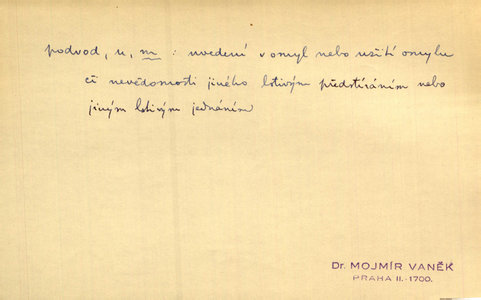 podvod, u, m : uvedení v omyl nebo užití omylu
či nevědomosti jiného lstivým předstíráním nebo
jiným lstivým jednáním
Dr. MOJMÍR VANĚK
PRAHA II.-1700.